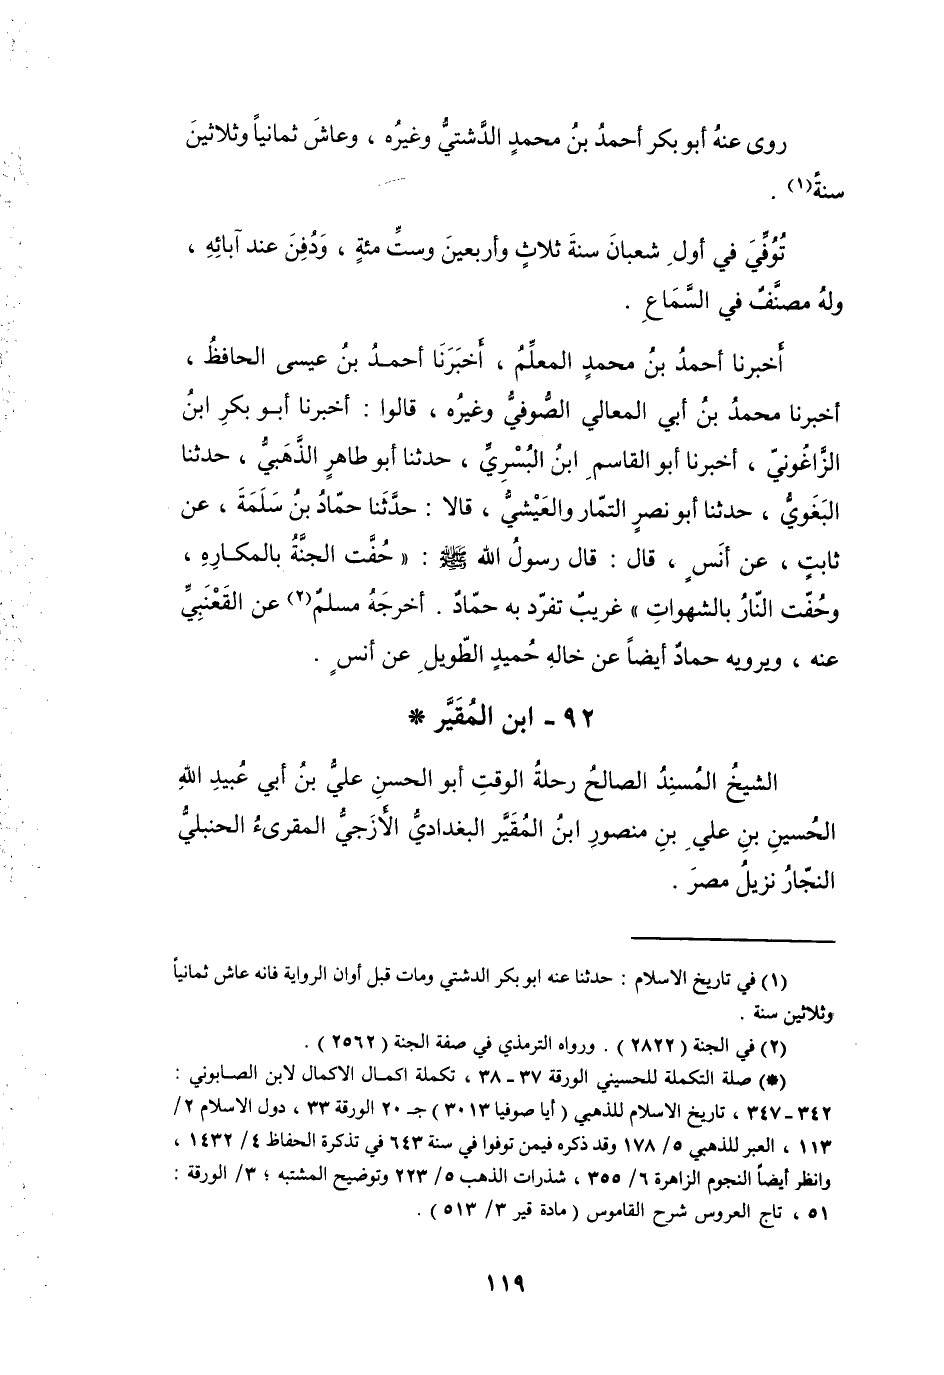 روى عنهُ أبو بكر أحمدُ بنُ محمدٍ الدَّشتيُّ وغيرُه ، وعاشَ ثمانياً وثلاثينَ
سنةً(١) .
تُوُفِّيَ في أولِ شعبانَ سنةَ ثلاثٍ وأربعينَ وستِّ مئةٍ ، وَدُفِنَ عند آبائِهِ ،
ولهُ مصنَّفٌ في السَّمَاعِ .
أَخبرنا أحمدُ بنُ محمدٍ المعلِّمُ ، أَخبَرَنَا أحمدُ بنُ عيسى الحافظُ ،
أخبرنا محمدُ بنُ أبي المعالي الصُّوفيُّ وغيرُه ، قالوا : أخبرنا أبو بكرِ ابنُ
الزَّاغُونيّ ، أخبرنا أبو القاسمِ ابنُ البُسْرِيِّ ، حدثنا أبو طاهرٍ الذَّهَبيُّ ، حدثنا
البَغَويُّ ، حدثنا أبو نصرٍ التمّار والعَيْشيُّ ، قالا : حدَّثَنا حمّادُ بنُ سَلَمَةَ ، عن
ثابتٍ ، عن أنَسٍ ، قال : قال رسولُ الله ﷺ : « حُفَّت الجنَّةُ بالمكارِهِ ،
وحُفّت النّارُ بالشهواتِ » غريبٌ تفرّد به حمّادٌ . أخرجَهُ مسلمٌ(٢) عن القَعْنَبِيِّ
عنه ، ويرويه حمادٌ أيضاً عن خالهِ حُميدٍ الطّويلِ عن أنسٍ .
٩٢ - ابن المُقَيَّر *
الشيخُ المُسنِدُ الصالحُ رحلةُ الوقتِ أبو الحسنِ عليُّ بنُ أبي عُبيدِ اللهِ
الحُسينِ بنِ علي بنِ منصورِ ابنُ المُقَيَّر البغداديُّ الأَزَجيُّ المقرىءُ الحنبليُّ
النجّارُ نزيلُ مصرَ .
(١) في تاريخ الاسلام : حدثنا عنه ابو بكر الدشتي ومات قبل أوان الرواية فانه عاش ثمانياً
وثلاثين سنة .
(٢) في الجنة ( ٢٨٢٢ ) . ورواه الترمذي في صفة الجنة ( ٢٥٦٢ ) .
(*) صلة التكملة للحسيني الورقة ٣٧ - ٣٨ ، تكملة اكمال الاكمال لابن الصابوني :
٣٤٢ - ٣٤٧ ، تاريخ الاسلام للذهبي ( أيا صوفيا ٣٠١٣ ) جـ ٢٠ الورقة ٣٣ ، دول الاسلام ٢ /
١١٣ ، العبر للذهبي ٥ / ١٧٨ وقد ذكره فيمن توفوا في سنة ٦٤٣ في تذكرة الحفاظ ٤ / ١٤٣٢ ،
وانظر أيضاً النجوم الزاهرة ٦ / ٣٥٥ ، شذرات الذهب ٥ / ٢٢٣ وتوضيح المشتبه ؛ ٣ / الورقة :
٥١ ، تاج العروس شرح القاموس ( مادة قير ٣ / ٥١٣ ) .
١١٩